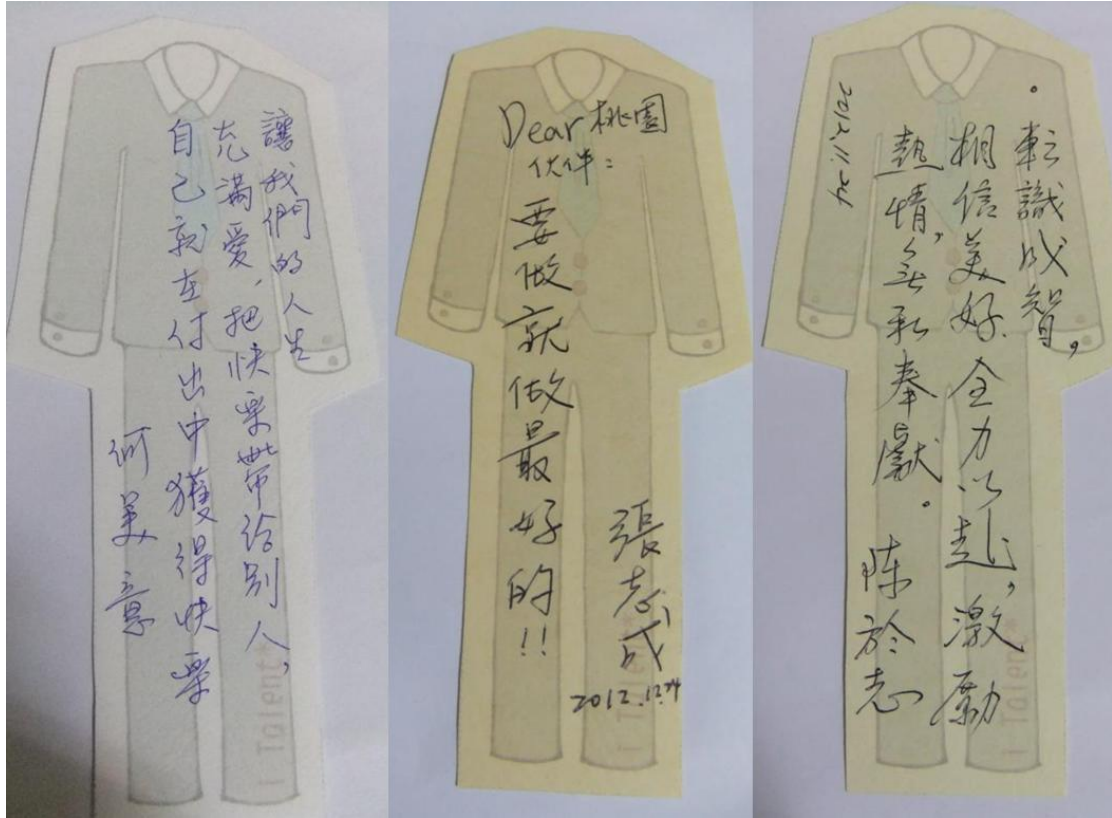 讓我們的人生
充滿愛,把快樂帶給別人,
自己就在付出中獲得快樂
何美意
I Talent*
Dear 桃園
伙伴:
要做就做最好的!!
張志成
2012.12.24
I Talent*
。転識成智,
相信美好.全力以赴,激勵
熱情,無私奉獻。
陈於志
2012.11.24
I Talent*